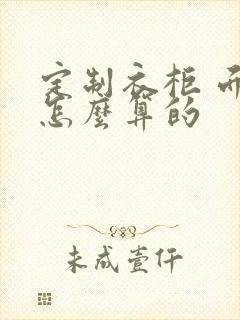 定制衣柜
怎麼算的
未成壹仟